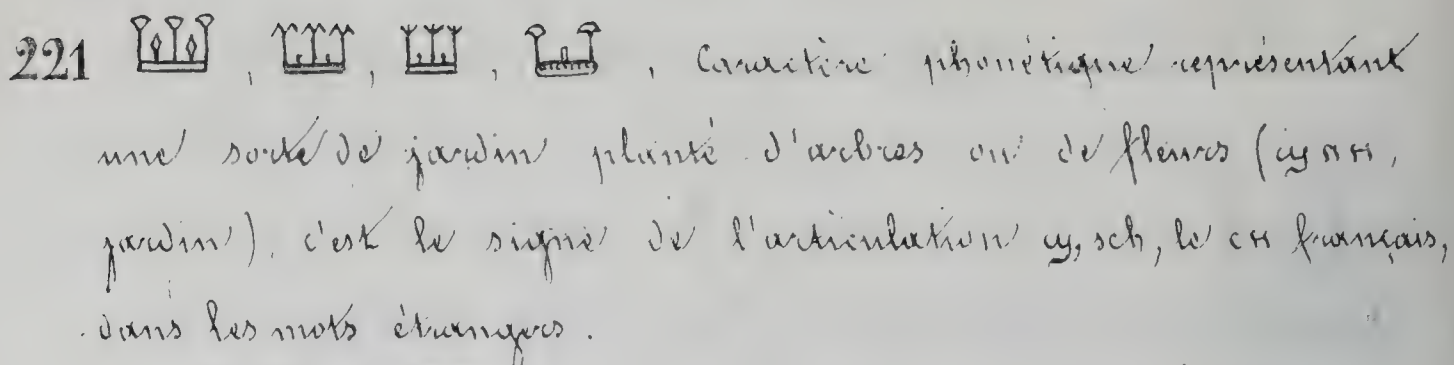 221 𓆷, 𓆷, 𓆷, , Caractère phonétique représentant
une sorte de jardin planté d'arbres ou de fleurs (ϣⲛⲏ,
jardin). c'est le signe de l'articulation ϣ, sch, le CH français,
dans les mots étrangers.